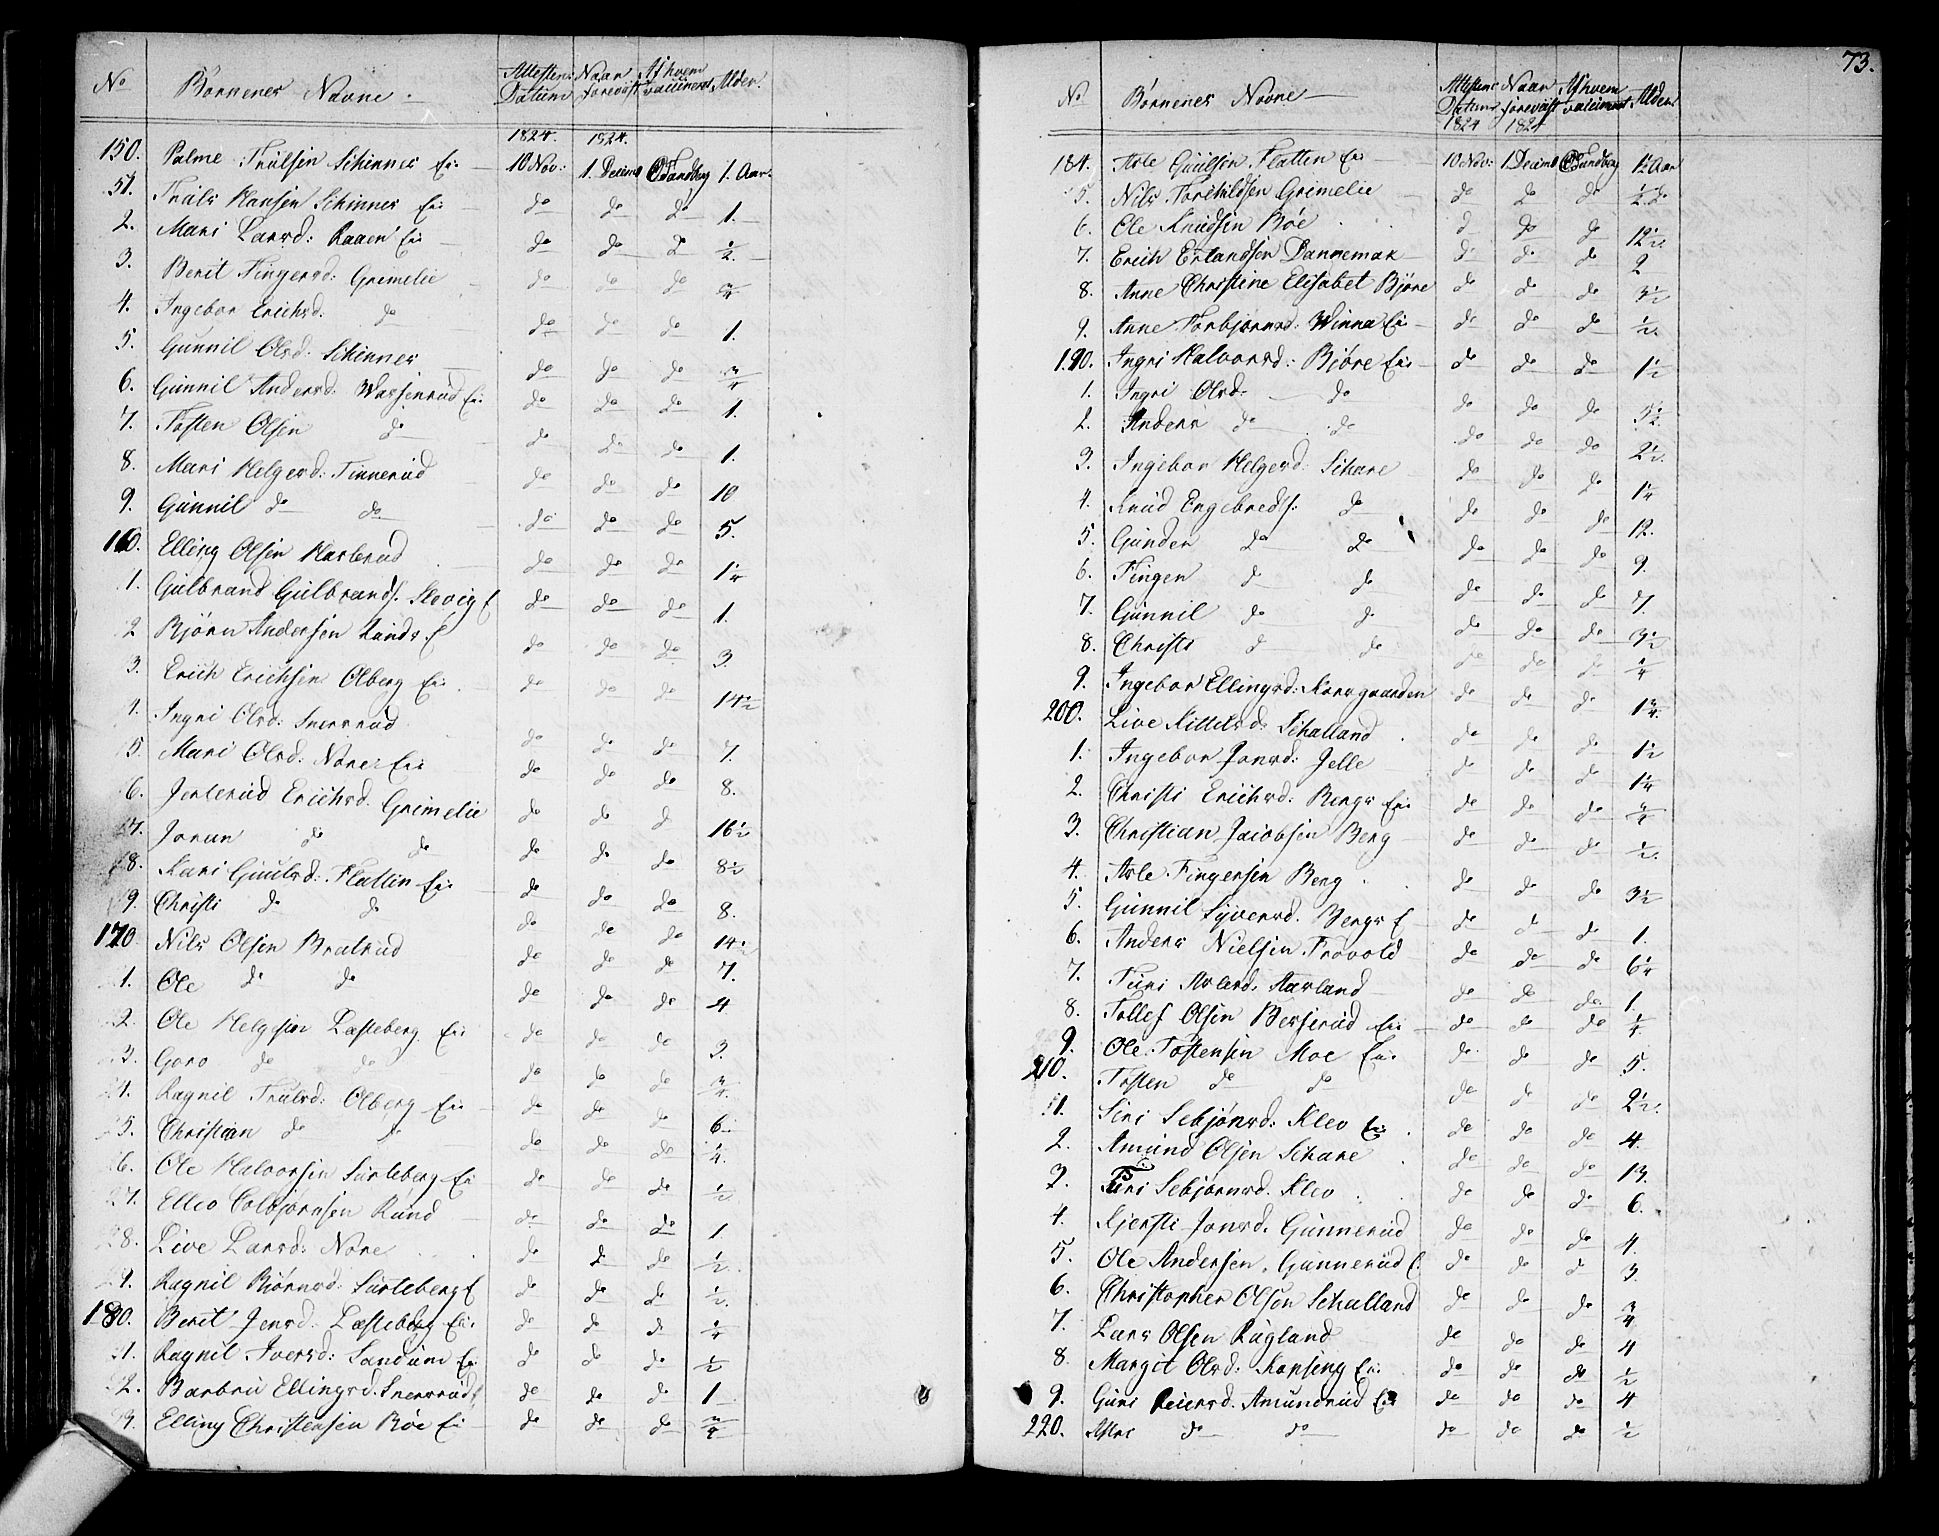 No Børnenes Navne. Attestens Datum Naar forevist Af hvem vaccineret Alder.
1824. 1824.
150. Palme Trulsen Schinnes Ei 10 Nov: 1. Decimb O Sandberg 1. Aar.
51. Truls Hansen Schinnes Ei do do do 1.
2. Mari Larsd: Raaen Ei do do do 1/2.
3. Berit Fingersd: Grimelie do do do 3/4
4. Ingebor Erichsd. do do do do 1.
5. Gunnil Olsd. Schinnes do do do 3/4
6. Gunnil Andersd. Warsenrud Ei. do do do 1.
7. Tosten Olsen do do do do 1.
8. Mari Helgesd: Tinnerud do do do 10
9. Gunnil do do do do do 5.
160. Elling Olsen Karlerud do do do 1 1/4
1. Gulbrand Gulbrands. Skovig E do do do 1.
2 Bjørn Andersen Runds. E do do do 3.
3. Erich Erichsen Olberg Ei. do do do 14 1/2
4. Ingri Olsd: Snersrud do do do 7.
5. Mari Olsd: Nores Ei do do do 8.
6. Jerterud Erichsd. Grimelie do do d 16 1/2
7. Jorun do do do do do 8 1/2
8. Kari Guulsd: Flatten Ei do do do 8.
9. Christi do do do do do 14 1/2
170 Nils Olsen Bratrud do do do 7.
1. Ole do do do do do 4
2. Ole Helgesen Læsteberg Ei do do do 3.
3. Goro do do do do do 3/4.
4. Ragnil Trulsd: Olberg Ei do do do 6
5. Christian do do do do do 1/4.
6. Ole Halvorsen Surteberg Ei do do do 1/2
7. Ellev Colbjørnsen Rund do do do 1
8. Live Larsd: Nore do do do 1/2.
9. Ragnil Bjørnsd: Surteberg E do do do 1/2.
180. Berit Jensd. Læsteberg Ei. do do do 1/4
1. Ragnil Iversd: Sandum Ei do do do 1/2
2. Barbru Ellingsd. Snersrud E do do do 1
3. Elling Christensen Røe Ei do do do 3/4
73.
No Børnenes Navne Attestens Datum Naar forevist Af hvem vaccineret Alder
1824 1824
184. Asle Guulsen Flatten Ei 10 Nov: 1 Decimb O Sandberg 1 1/2 Aar
5. Nils Torchildsen Grimelie do do do 1/2 do
6. Ole Knudsen Røe d do do 12 1/2.
7. Erich Erlandsen Dannemak do do do 2
8. Anne Christine Elisabet Bjøre do do do 3 1/2
9. Anne Torbjørnsd: Winna Ei do do do 1/2.
190. Ingri Halvorsd: Bjøre Ei do do do 1 1/2
1. Ingri Olsd. do do do do 3 1/2.
2. Anders do do do do do 2 1/2.
3. Ingebor Helgesd: Schare do do do 1 1/4
4. Knud Engebreds: do do do do 12.
5. Gunder do do do do do 9.
6. Fingen do do do do do 7.
7. Gunnil do do do do do 3 1/2
8. Christi do do do do do 1/4
9. Ingebor Ellingsd: Korsgaarden do do do 1 3/4.
200. Live Kittelsd: Schalland do do do 1 1/2
1. Ingebor Jonsd: Jelle do do do 1 1/4
2. Christi Erichsd: Bergs Ei do do do 1/4
3. Christian Jacobsen Berg do do do 1/2.
4. Asle Fingersen Berg do do do 3 1/2
5. Gunnil Syversd. Bergs E do do do 1.
6. Anders Nielsen Frovold do do do 6 1/4
7. Turi Aslesd. Aasland do do do 1.
8. Tollef Olsen Berserud Ei do do do 1/4
9. Ole Tostensen Moe Ei. do do do 5.
210. Tosten do do do do do 2 1/2.
11. Siri Sebjønsd: Klev Ei do do do 4.
2. Amund Olsen Schare do do do 13.
3. Turi Sebjørnsd. Klev do do do 6.
4. Kjersti Jonsd. Gunnerud do do do 4.
5. Ole Andersen. Gunnerud E. do do d 3.
6. Christopher Olsen Schalland do do do 3/4
7. Lars Olsen Rugland do do do 4
8. Margit Olsd: Korsing Ei. do do do 1/2
9. Guri Reiersd. Amundrud Ei do do do 4
220. Astri do do do do do 1/2